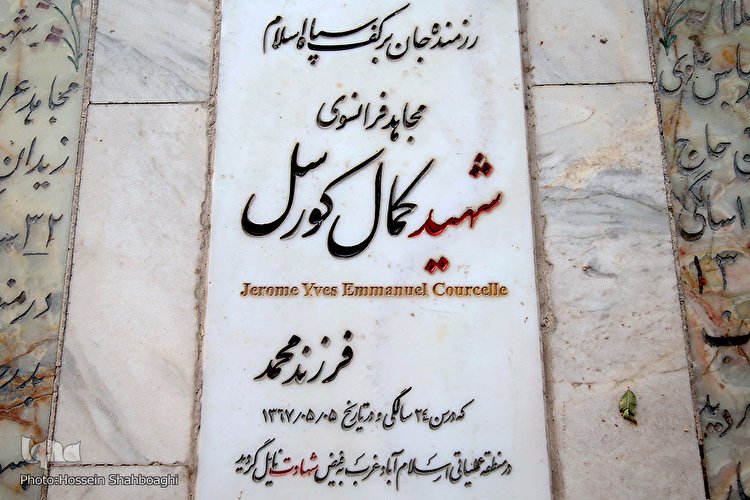 رزمنده جان بر کف سپاه اسلام
مجاهد فرانسوی
شهید کمال کورسل
Jerome Yves Emmanuel Courcelle
فرزند محمد
که در سن ۲۴ سالگی و در تاریخ ۱۳۶۷/۰۵/۰۵
در منطقه عملیاتی اسلام آباد غرب به فیض شهادت نایل گردید
مجاهد عراقی
زیدان
۳۲
علوی
حاج
سالگی
iqna
Photo:Hossein Shahboaghi